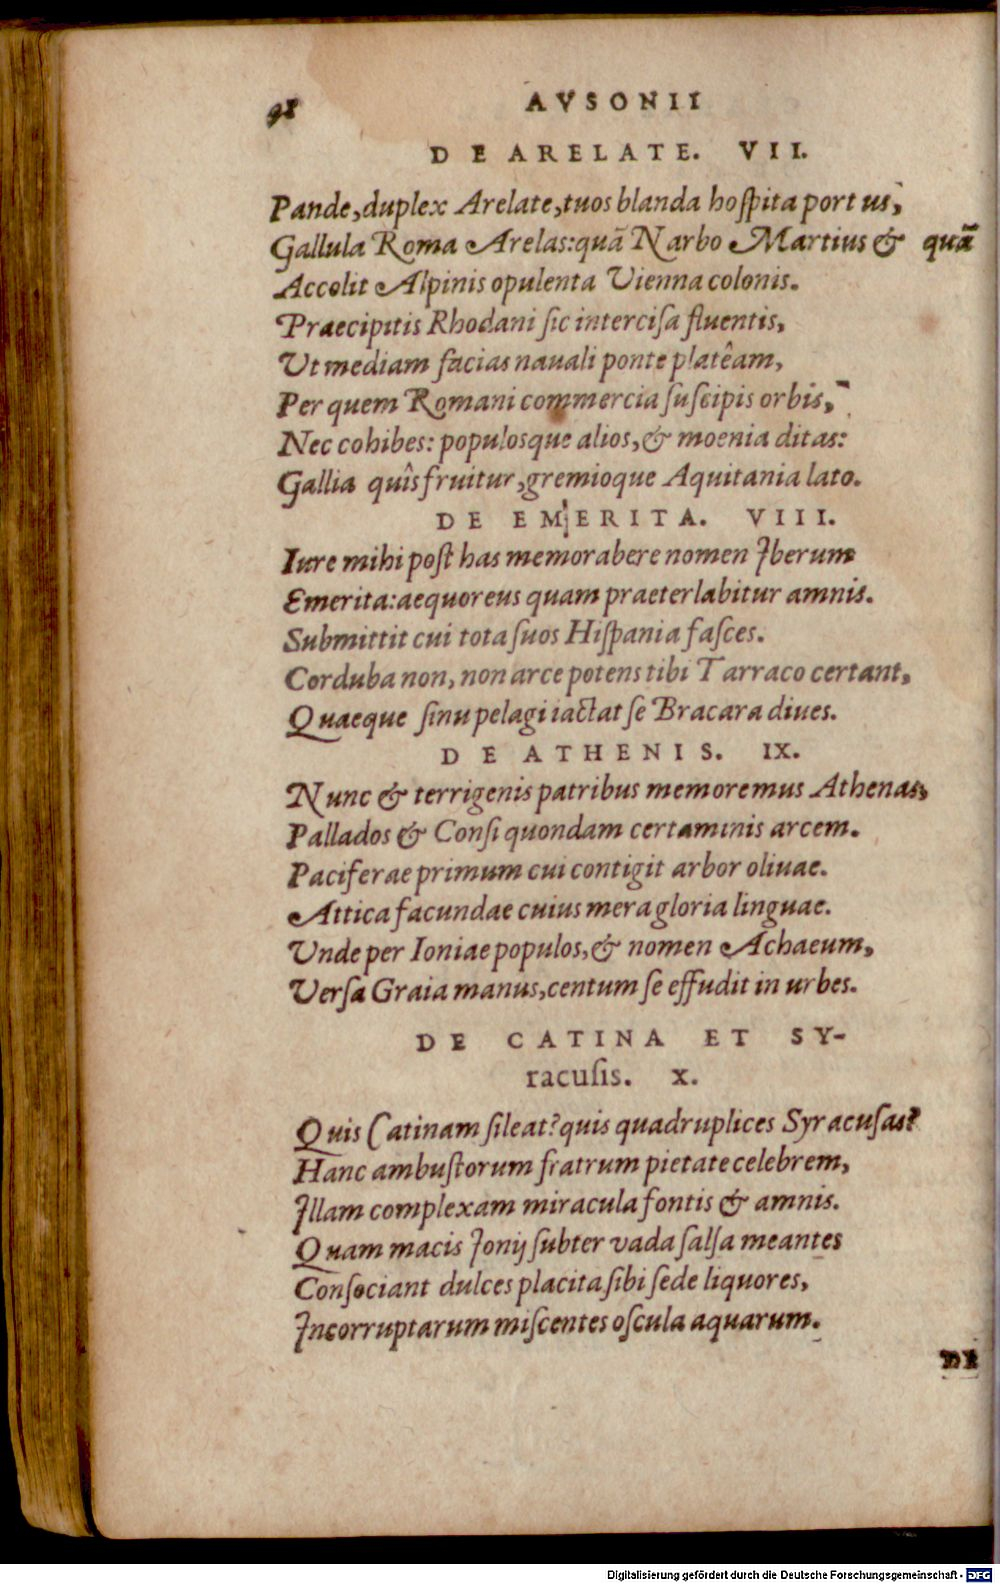 98 AVSONII
DE ARELATE. VII.
Pande, duplex Arelate, tuos blanda hoſpita portus,
Gallula Roma Arelas: quã Narbo Martius & quã
Accolit Alpinis opulenta Vienna colonis.
Praecipitis Rhodani ſic interciſa fluentis,
Ut mediam facias nauali ponte platêam,
Per quem Romani commercia ſuſcipis orbis,
Nec cohibes: populosque alios, & moenia ditas:
Gallia quîs fruitur, gremioque Aquitania lato.
DE EMERITA. VIII.
Iure mihi poſt has memorabere nomen Iberum
Emerita: aequoreus quam praeterlabitur amnis.
Submittit cui tota ſuos Hiſpania faſces.
Corduba non, non arce potens tibi Tarraco certant,
Quaeque ſinu pelagi iactat ſe Bracara diues.
DE ATHENIS. IX.
Nunc & terrigenis patribus memoremus Athenas,
Pallados & Conſi quondam certaminis arcem.
Paciferae primum cui contigit arbor oliuae.
Attica facundae cuius mera gloria linguae.
Unde per Ioniae populos, & nomen Achaeum,
Verſa Graia manus, centum ſe effudit in urbes.
DE CATINA ET SY-
racuſis. X.
Quis Catinam ſileat? quis quadruplices Syracuſas?
Hanc ambuſtorum fratrum pietate celebrem,
Illam complexam miracula fontis & amnis.
Quam macis Ionij ſubter vada ſalſa meantes
Conſociant dulces placita ſibi ſede liquores,
Incorruptarum miſcentes oſcula aquarum.
DE
Digitalisierung gefördert durch die Deutsche Forschungsgemeinschaft - DFG